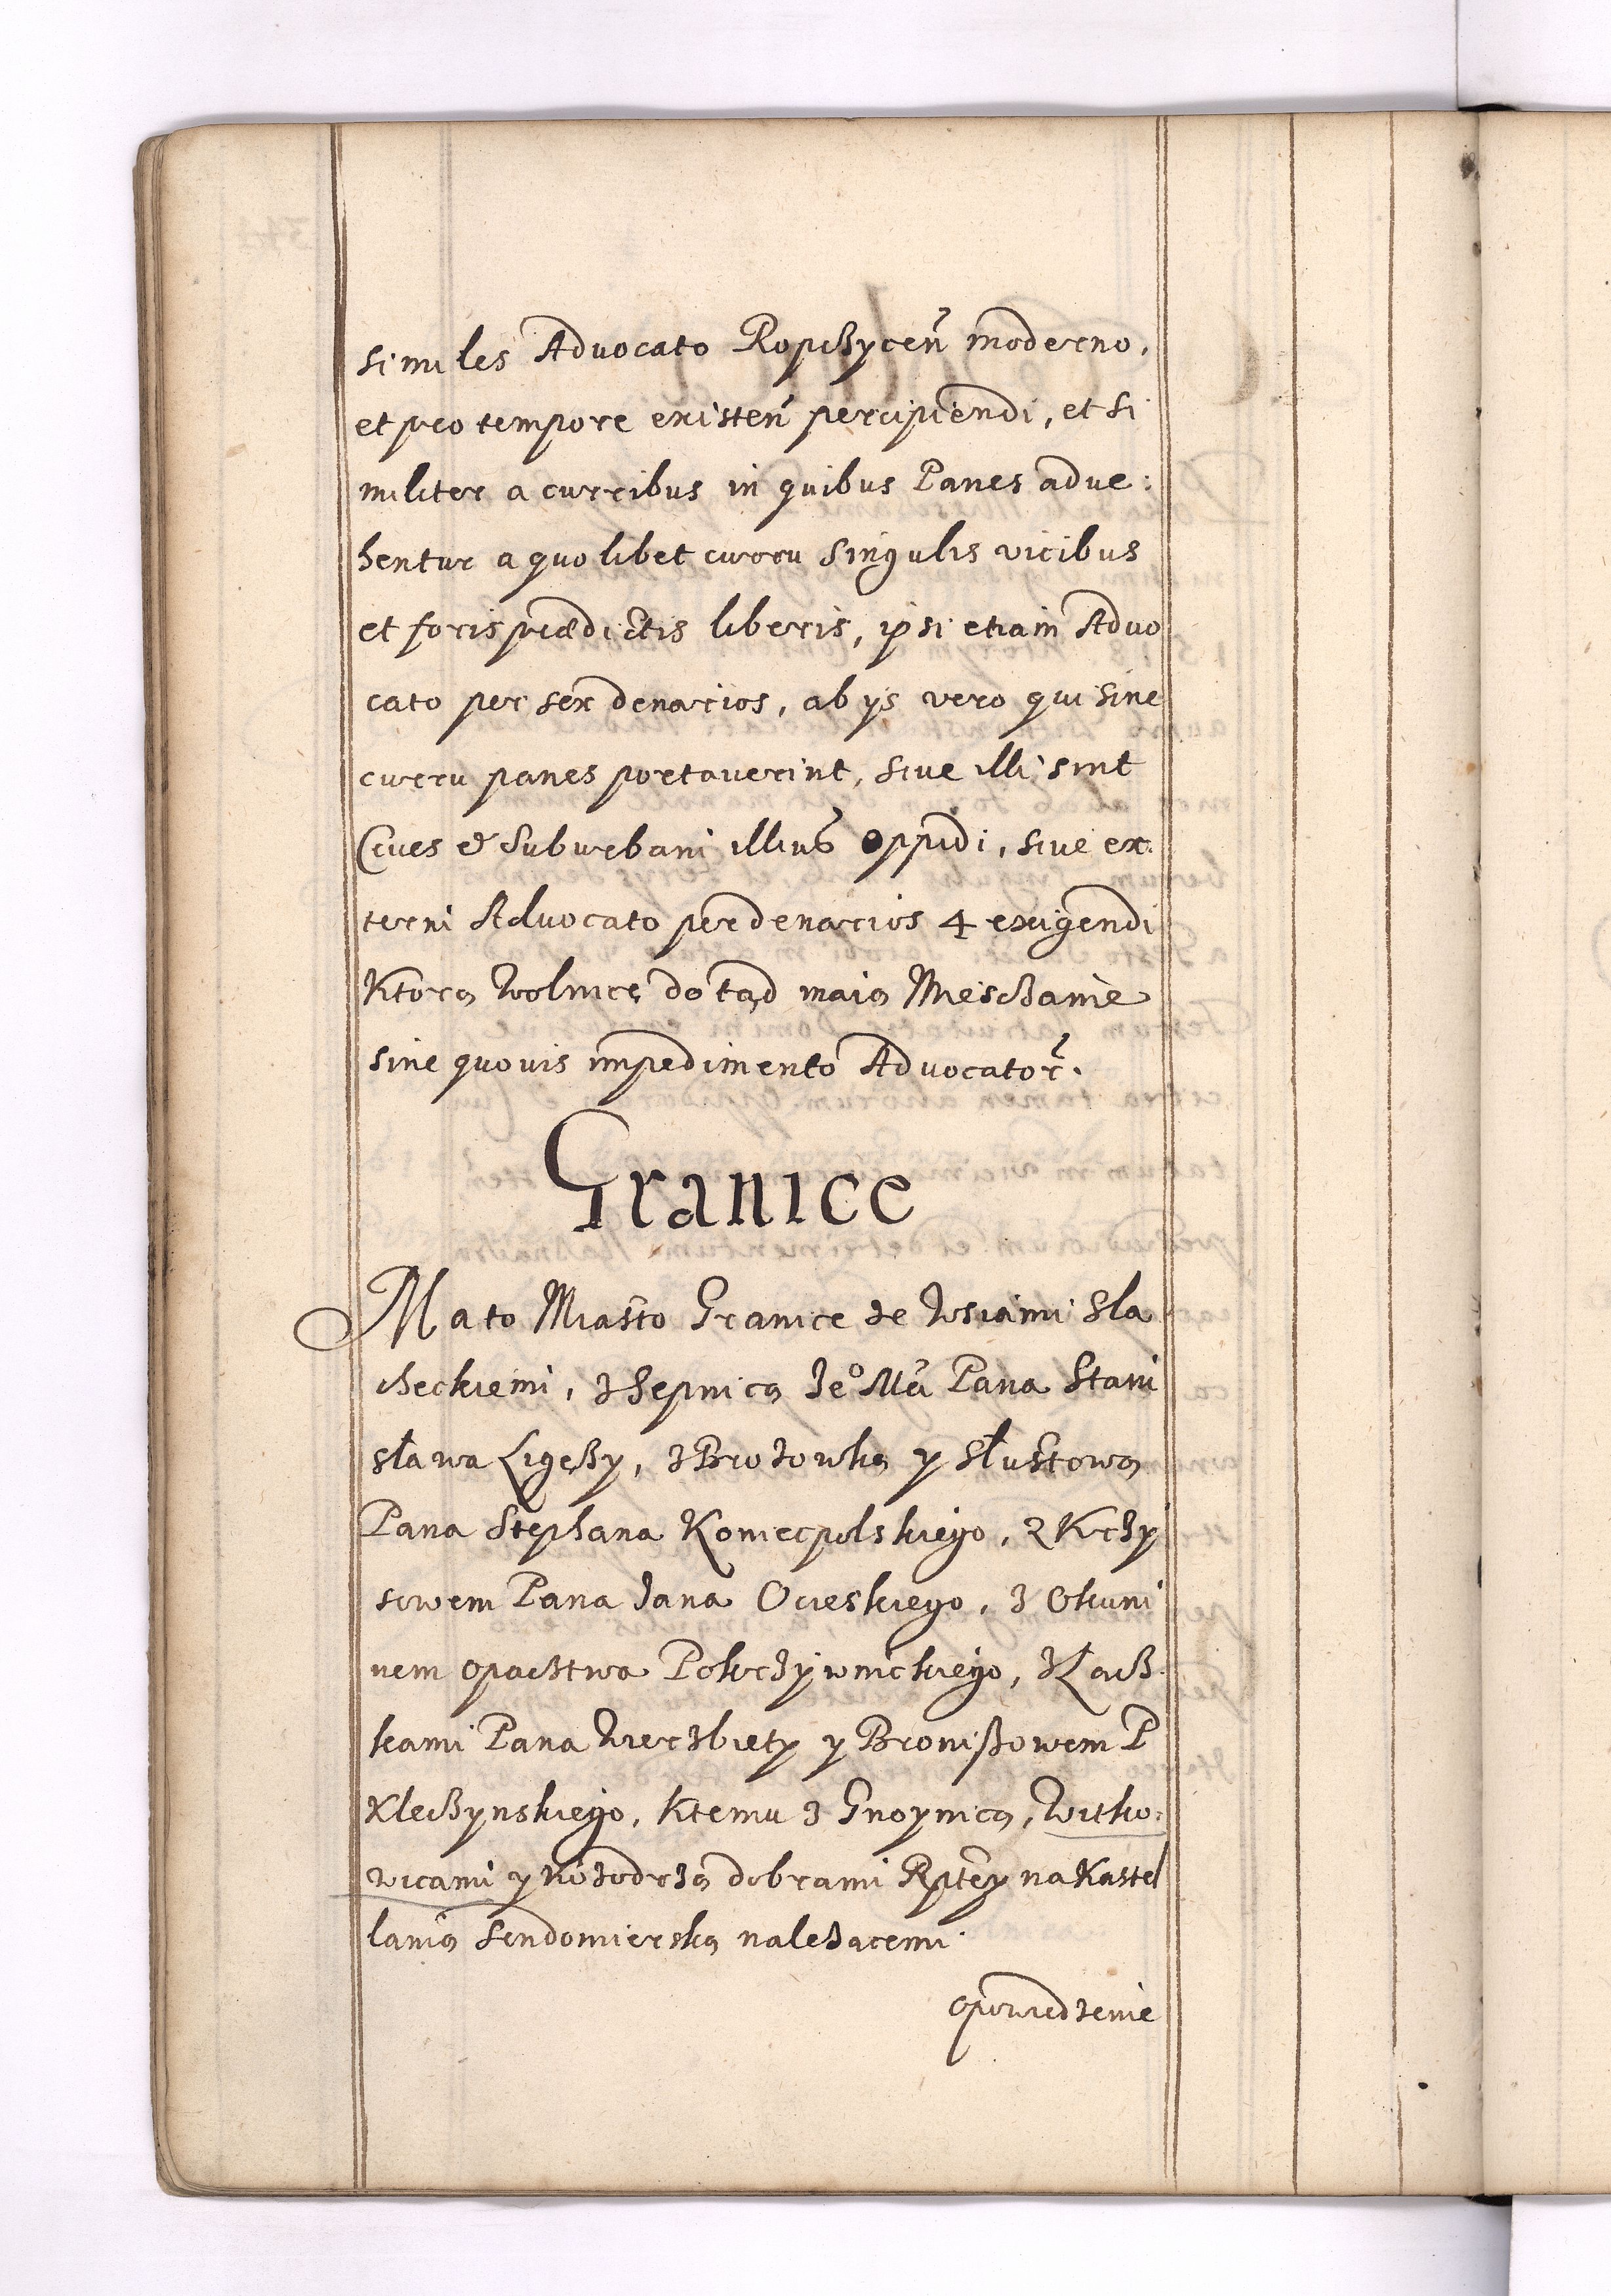 similes Advocato Ropczyceñ moderno,
et pro tempore existeñ percipiendi, et si
militer a curribus in quibus Panes adve:
hentur a quolibet curru singulis vicibus
et foris prædictis liberis, ipsi etiam Advo
cato per sex denarios, ab ijs vero qui sine
curru panes portaverint, siue illi sint
Ciues & Suburbani illius Oppidi, siue ex
terni Advocato per denarios 4 exigendi
Ktorą Wolnicę dotąd maią Miesczanie
sine quovis impedimento Advocator.
Granice
Ma to Miasto Granice ze Wsiami Sla
checkiemi, z Chepnicą Je° Mći Pana Stani
sława Ligęzy, z Brozowką y Słustową
Pana Stephana Koniecpolskiego, z Krzy
sowem Pana Jana Ocieskiego, z Okuni
nem opactwa Pokrzywnickiego, z Łącz
kami Pana Wierzbięty y Broniszowem P
Kleczynskiego, Ktemu z Gnoynicą, Witko:
wicami y Kozodrzą dobrami Rptey na Kastel
lanią Sendomierską należacemi
opowiedzenie